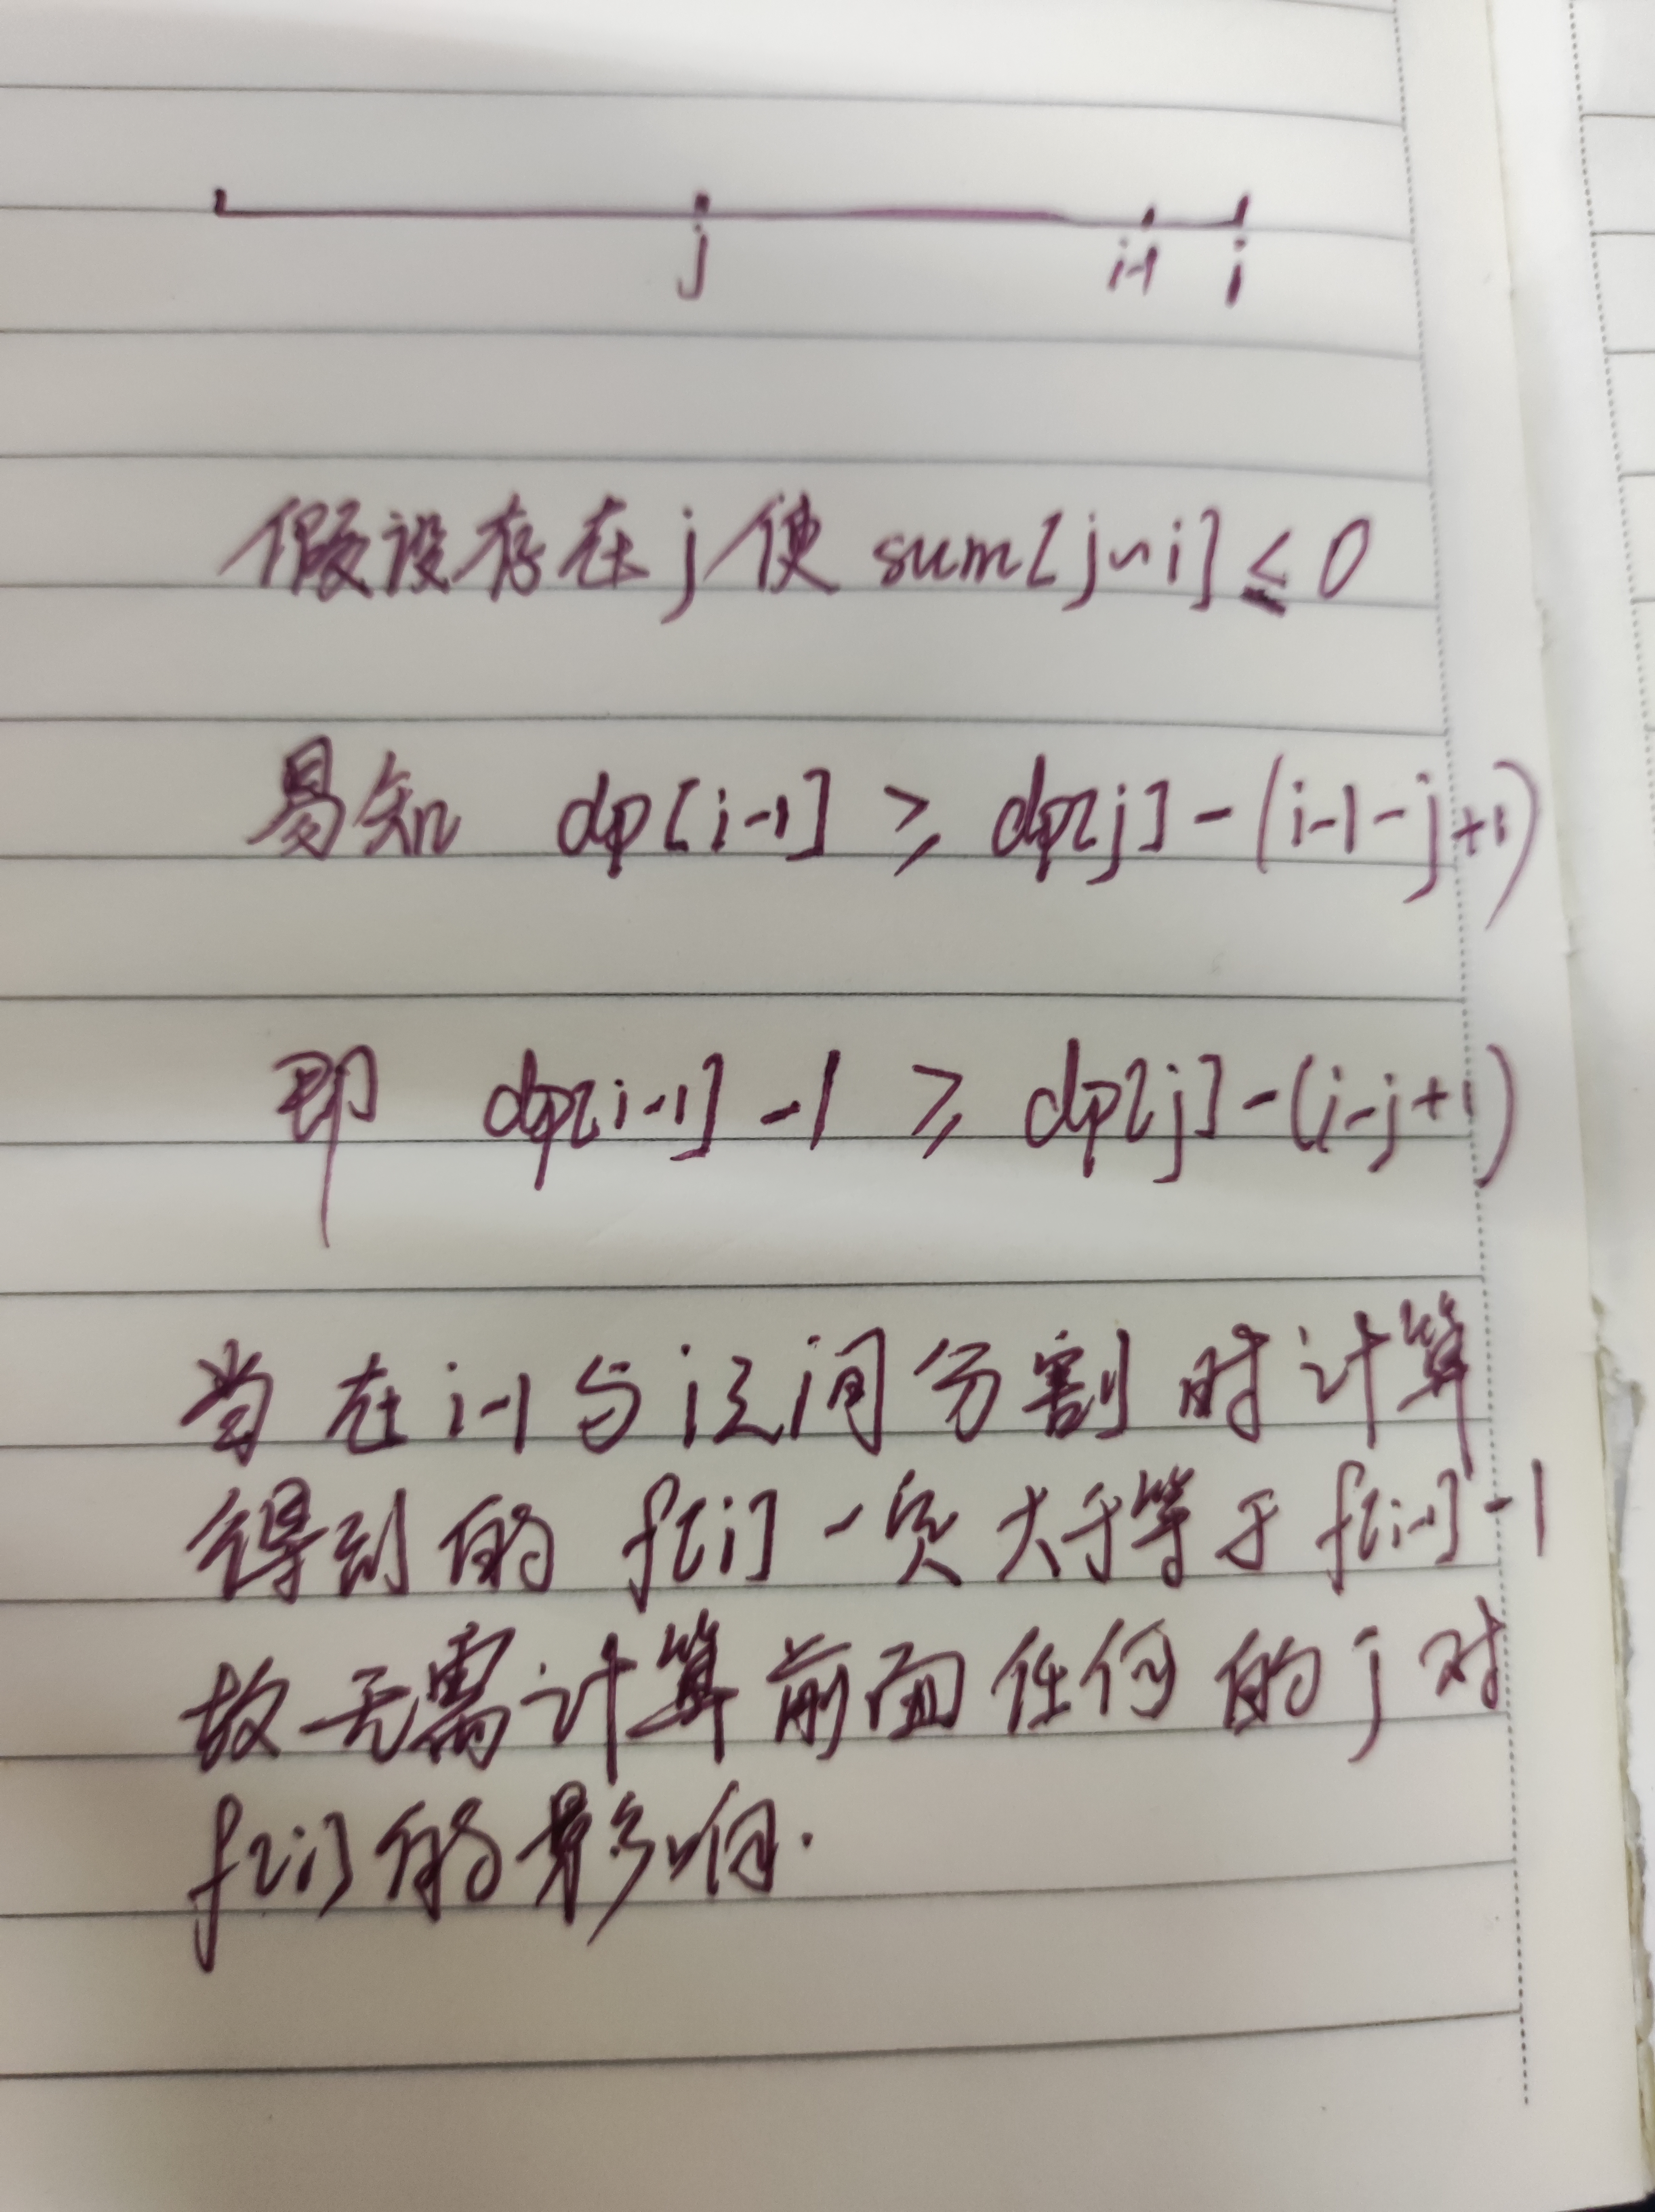 j i-1 i
假设存在j使 sum[j~i]≤0
易知 dp[i-1] ≥ dp[j]-(i-1-j+1)
即 dp[i-1]-1 ≥ dp[j]-(i-j+1)
当在i-1与i之间分割时计算
得到的 f[i]一定大于等于f[i-1]-1
故无需计算前面任何的j对
f[i]的影响.